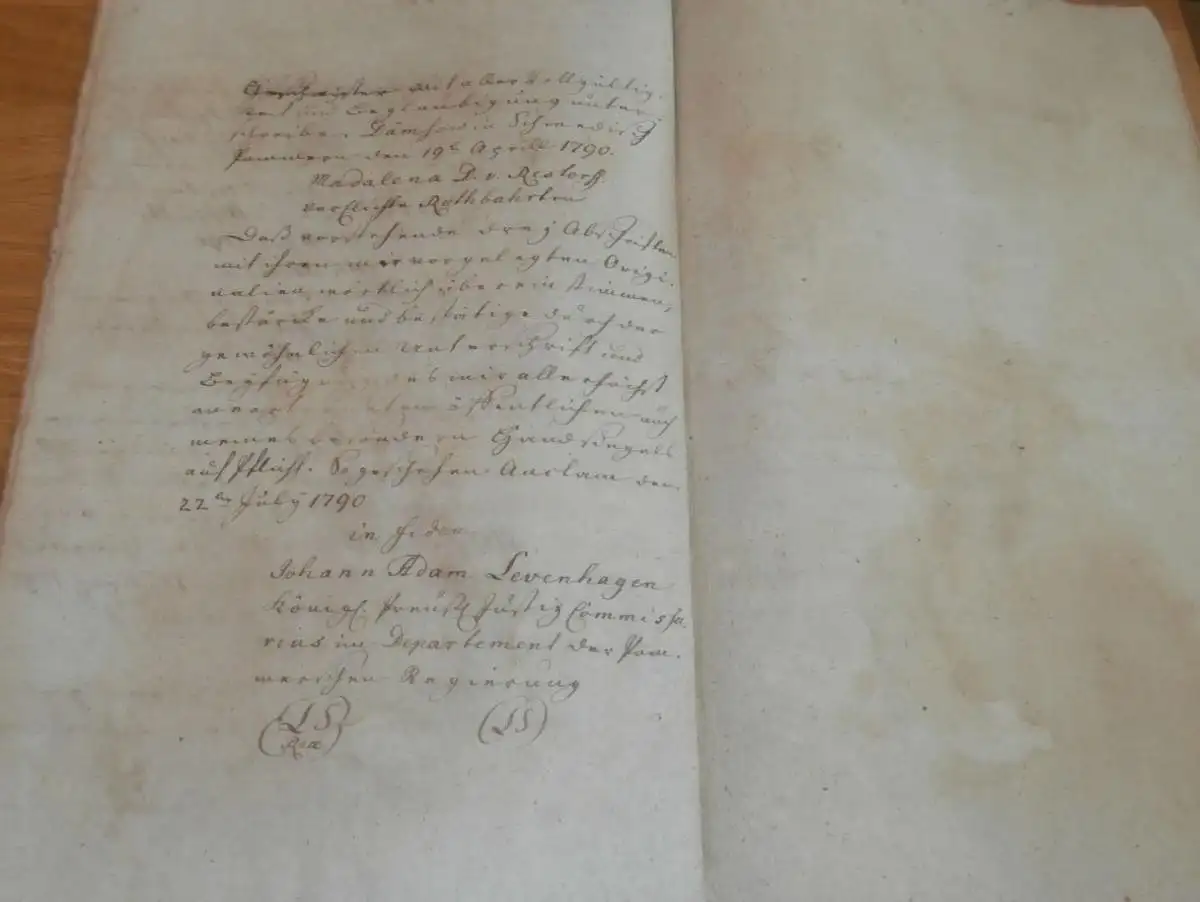 Geschwister mit aller vollgültig-
keit und Beglaubigung unter
schreibe. Dämsow in Schwedisch
Pommern den 19t April 1790.
Madalena D. v. Restorff
verehlichte Rothbahrten
Daß vorstehende drey Abschriften
mit ihren mir vorgelegten Origi-
nalien wörtlich überein stimmen,
bestärcke und bestätige durch der
gewöhnlichen Unterschrift und
Beyfügung des mir allerhöchst
öffentlichen auch
meines besondern Handsiegels
auf Pflicht. So geschehen Anclam den
22ten July 1790
in fidem
Johann Adam Levenhagen
Königl. Preusl. Justiz Commissa-
rius im Departement der Pom-
merschen Regierung
(LS) (LS)
Reg